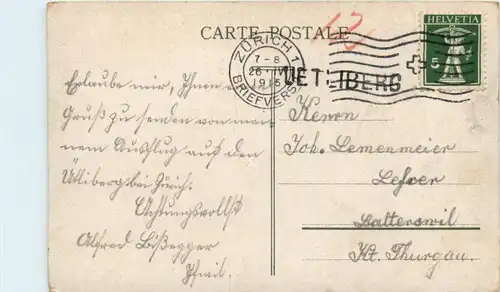 CARTE POSTALE
13
HELVETIA
5
ZÜRICH 1
7-8
26. IV.
1915
BRIEFVERS.
UETLIBERG
Erlaube mir, Ihnen
Gruß zu senden von mei-
nem Ausflug auf den
Ütliberg bei Zürich.
Achtungsvollst
Alfred Bißegger
Herrn
Joh. Lemenmeier
Lehrer
Kt. Thurgau.